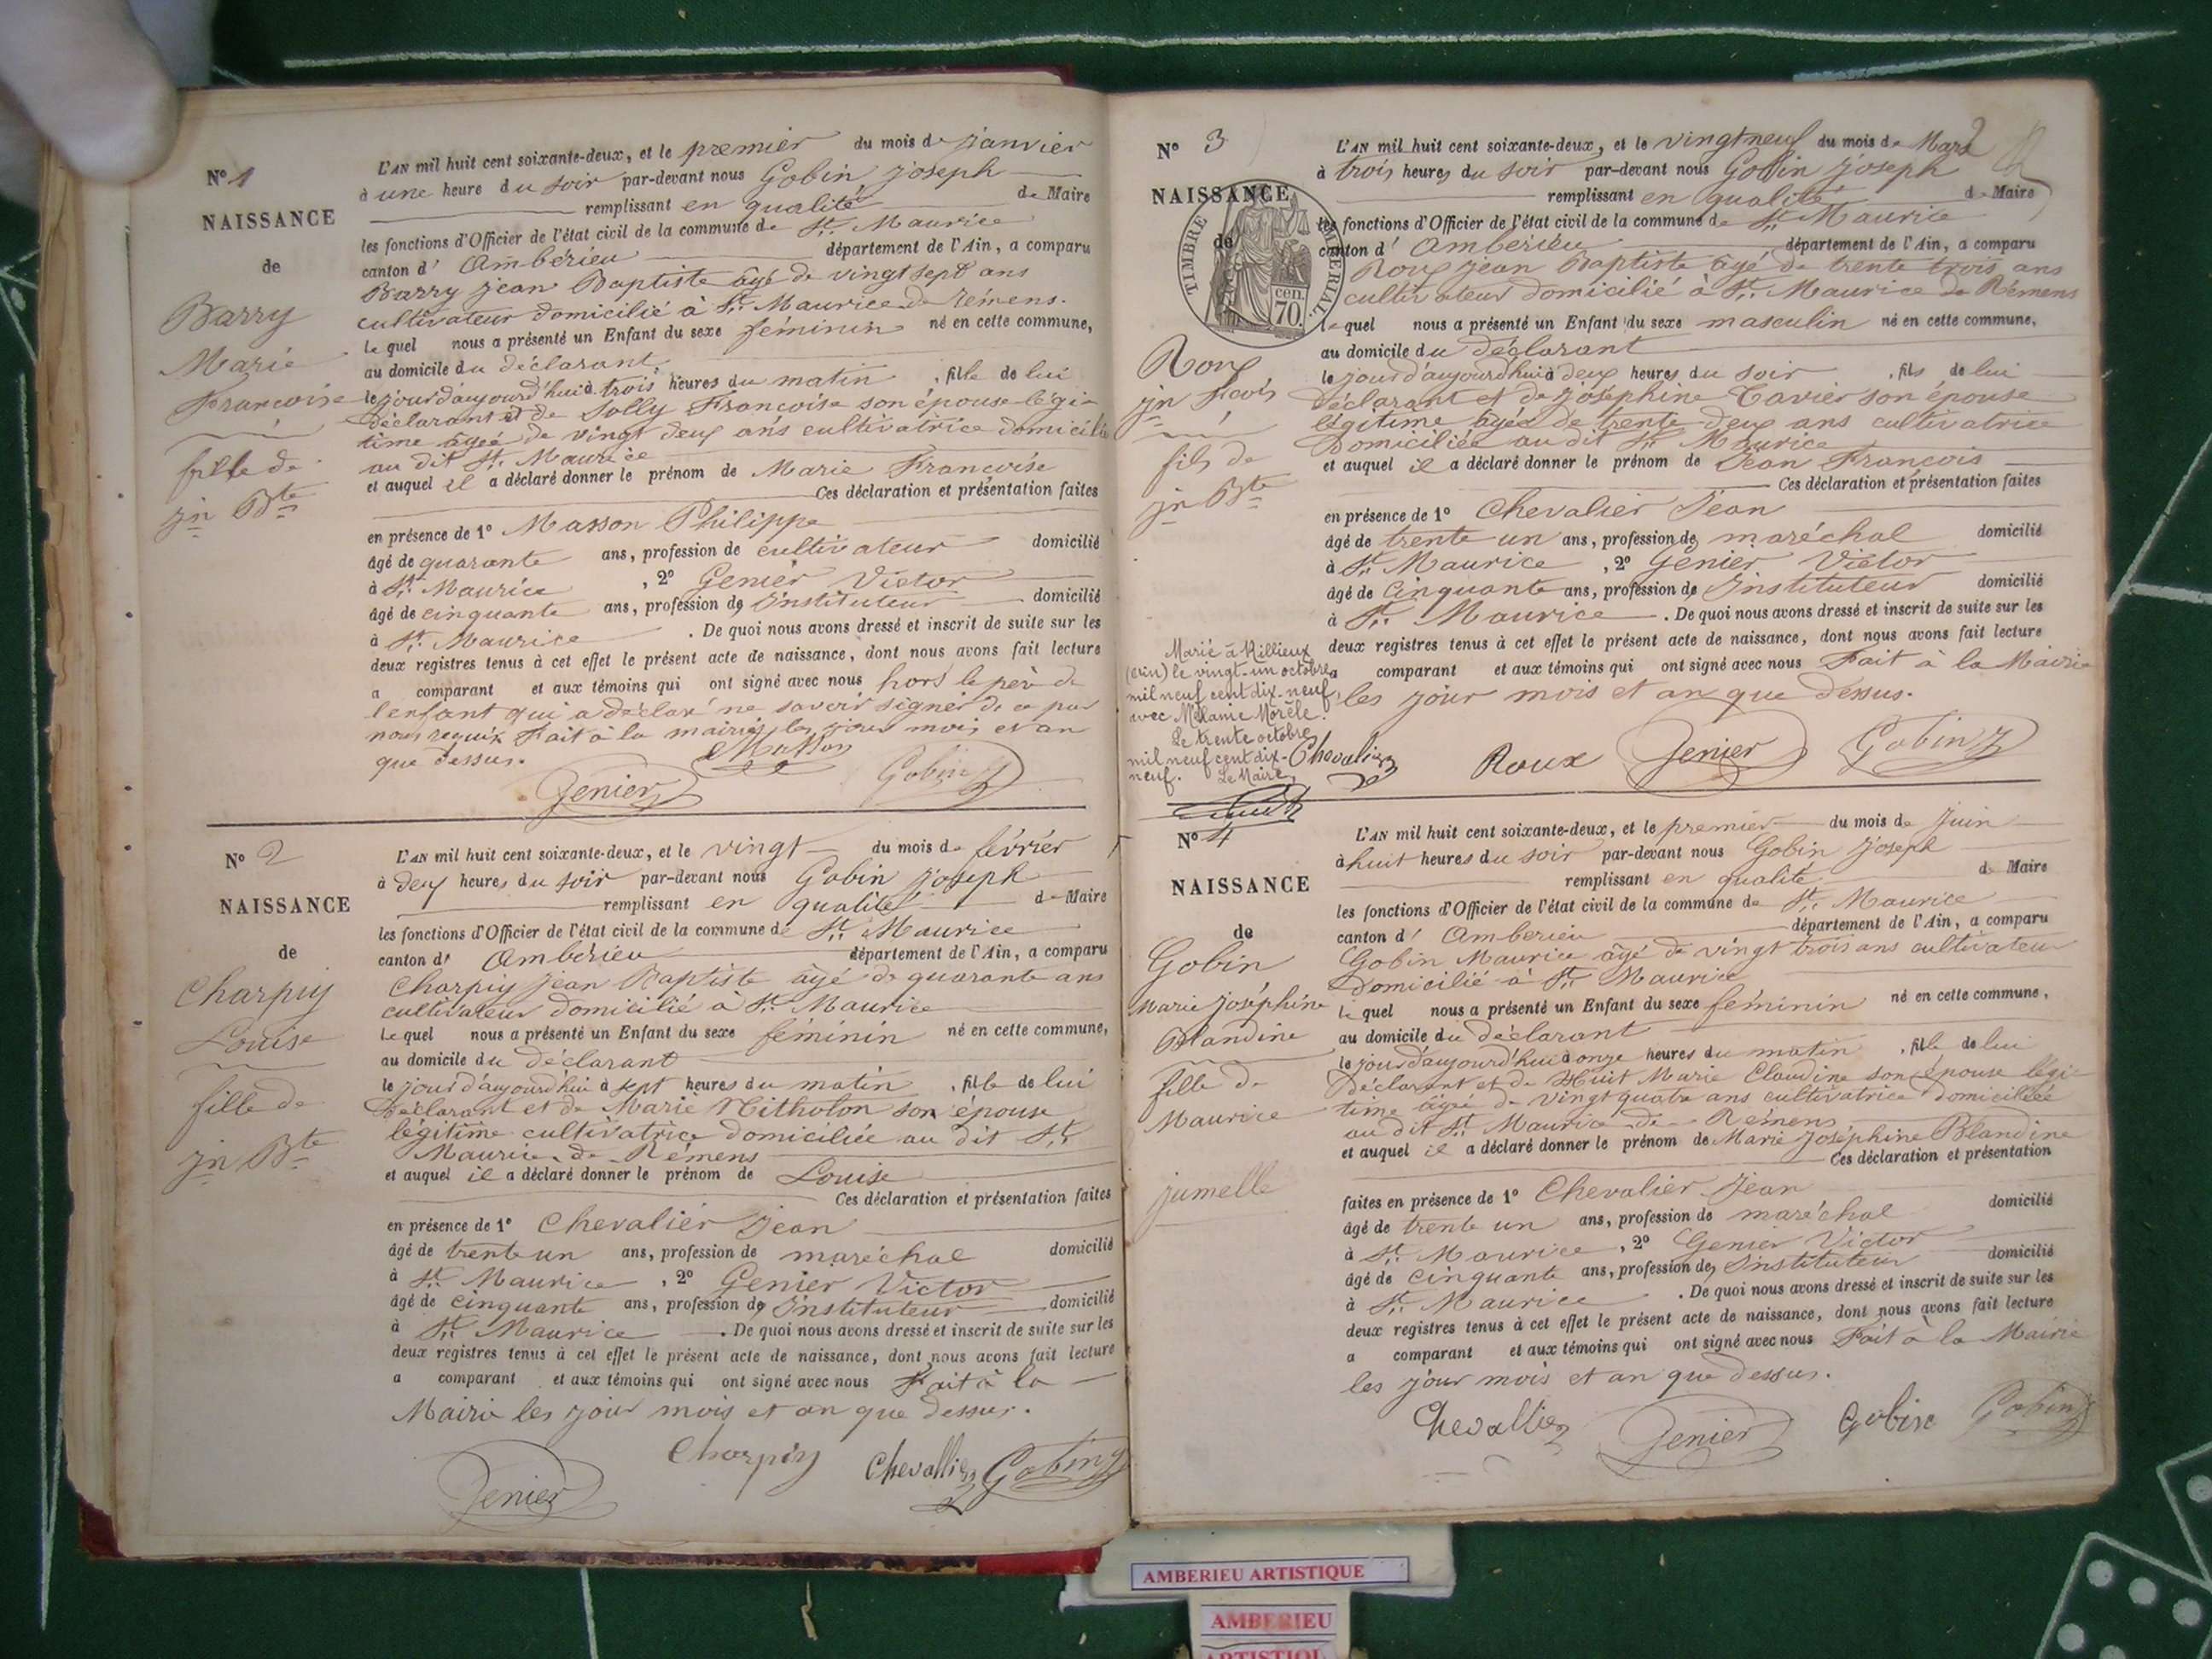 N° 1
NAISSANCE
de
Barry
Marie
Françoise
fille de
jn Bte
L'AN mil huit cent soixante-deux, et le premier du mois de janvier
à une heure du soir par-devant nous Gobin Joseph
remplissant en qualité de Maire
les fonctions d'Officier de l'état civil de la commune de St. Maurice
canton d' Ambérieu département de l'Ain, a comparu
Barry Jean Baptiste âgé de vingt sept ans
cultivateur domicilié à St. Maurice de Rémens.
lequel nous a présenté un Enfant du sexe féminin né en cette commune,
au domicile du déclarant,
le jour d'aujourd'hui à trois heures du matin , fille de lui
déclarant et de Jolly Françoise son épouse légi-
time âgée de vingt deux ans cultivatrice domicilié
au dit St. Maurice
et auquel il a déclaré donner le prénom de Marie Françoise
Ces déclaration et présentation faites
en présence de 1° Masson Philippe
âgé de quarante ans, profession de cultivateur domicilié
à St. Maurice , 2° Genier Victor
âgé de cinquante ans, profession de Instituteur domicilié
à St. Maurice . De quoi nous avons dressé et inscrit de suite sur les
deux registres tenus à cet effet le présent acte de naissance, dont nous avons fait lecture
a comparant et aux témoins qui ont signé avec nous hors le père de
l'enfant qui a déclaré ne savoir signer de ce par
nous requis Fait à la mairie les jour mois et an
que dessus.
Masson
Genier Gobin J
N° 2
NAISSANCE
de
Charpiy
Louise
fille de
jn Bte
L'AN mil huit cent soixante-deux, et le vingt du mois de février
à deux heures du soir par-devant nous Gobin Joseph
remplissant en qualité de Maire
les fonctions d'Officier de l'état civil de la commune de St. Maurice
canton d' Ambérieu département de l'Ain, a comparu
Charpiy Jean Baptiste âgé de quarante ans
cultivateur domicilié à St. Maurice
lequel nous a présenté un Enfant du sexe féminin né en cette commune,
au domicile du déclarant
le jour d'aujourd'hui à sept heures du matin , fille de lui
déclarant et de Marie son épouse
légitime cultivatrice domiciliée au dit St.
Maurice de Rémens
et auquel il a déclaré donner le prénom de Louise
Ces déclaration et présentation faites
en présence de 1° Chevalier Jean
âgé de trente un ans, profession de maréchal domicilié
à St. Maurice , 2° Genier Victor
âgé de cinquante ans, profession de Instituteur domicilié
à St. Maurice . De quoi nous avons dressé et inscrit de suite sur les
deux registres tenus à cet effet le présent acte de naissance, dont nous avons fait lecture
a comparant et aux témoins qui ont signé avec nous Fait à la
Mairie les jour mois et an que dessus.
Genier Charpiy Chevallier Gobin J
N° 3
NAISSANCE
de
TIMBRE IMPERIAL
70 cen.
Roux
jn Fcois
fils de
jn Bte
Marié à Rillieux
(Ain) le vingt-un octobre
mil neuf cent dix-neuf,
avec Mélanie Morèle.
Le trente octobre
mil neuf cent dix-
neuf. Le Maire,
L'AN mil huit cent soixante-deux, et le vingt neuf du mois de Mars
à trois heures du soir par-devant nous Gobin Joseph
remplissant en qualité de Maire
les fonctions d'Officier de l'état civil de la commune de St. Maurice
canton d' Ambérieu département de l'Ain, a comparu
Roux Jean Baptiste âgé de trente trois ans
cultivateur domicilié à St. Maurice de Rémens
lequel nous a présenté un Enfant du sexe masculin né en cette commune,
au domicile du déclarant
le jour d'aujourd'hui à deux heures du soir , fils de lui
déclarant et de Joséphine Tavier son épouse
légitime âgée de trente deux ans cultivatrice
Domiciliée au dit St. Maurice
et auquel il a déclaré donner le prénom de Jean François
Ces déclaration et présentation faites
en présence de 1° Chevalier Jean
âgé de trente un ans, profession de maréchal domicilié
à St. Maurice , 2° Genier Victor
âgé de Cinquante ans, profession de Instituteur domicilié
à St. Maurice . De quoi nous avons dressé et inscrit de suite sur les
deux registres tenus à cet effet le présent acte de naissance, dont nous avons fait lecture
a comparant et aux témoins qui ont signé avec nous Fait à la Mairie
les jour mois et an que dessus.
Chevalier Roux Genier Gobin J
N° 4
NAISSANCE
de
Gobin
Marie Joséphine
Blandine
fille de
Maurice
jumelle
L'AN mil huit cent soixante-deux, et le premier du mois de Juin
à huit heures du soir par-devant nous Gobin Joseph
remplissant en qualité de Maire
les fonctions d'Officier de l'état civil de la commune de St. Maurice
canton d' Ambérieu département de l'Ain, a comparu
Gobin Maurice âgé de vingt trois ans cultivateur
Domicilié à St. Maurice
lequel nous a présenté un Enfant du sexe féminin né en cette commune,
au domicile du déclarant
le jour d'aujourd'hui à onze heures du matin , fille de lui
Déclarant et de Marie Claudine son épouse légi-
time âgée de vingt quatre ans cultivatrice domiciliée
au dit St. Maurice de Rémens
et auquel il a déclaré donner le prénom de Marie Joséphine Blandine
Ces déclaration et présentation
faites en présence de 1° Chevalier Jean
âgé de trente un ans, profession de maréchal domicilié
à St. Maurice , 2° Genier Victor
âgé de Cinquante ans, profession de Instituteur domicilié
à St. Maurice . De quoi nous avons dressé et inscrit de suite sur les
deux registres tenus à cet effet le présent acte de naissance, dont nous avons fait lecture
a comparant et aux témoins qui ont signé avec nous Fait à la Mairie
les jour mois et an que dessus.
Chevallier Genier Gobin Gobin J
AMBERIEU ARTISTIQUE
AMBERIEU
ARTISTIQUE